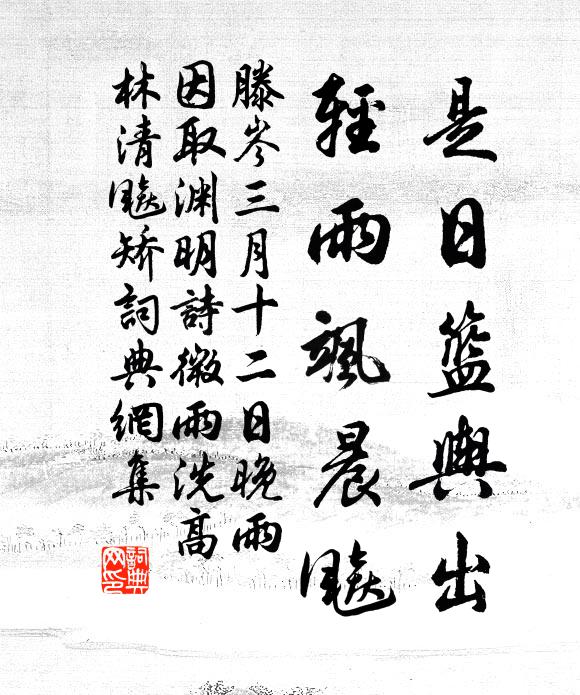 是日籃輿出
輕雨颯晨飈
滕岑三月十二日晚雨
因取渊明詩微雨洗高
林清飈矫詞典網集
詞典网印